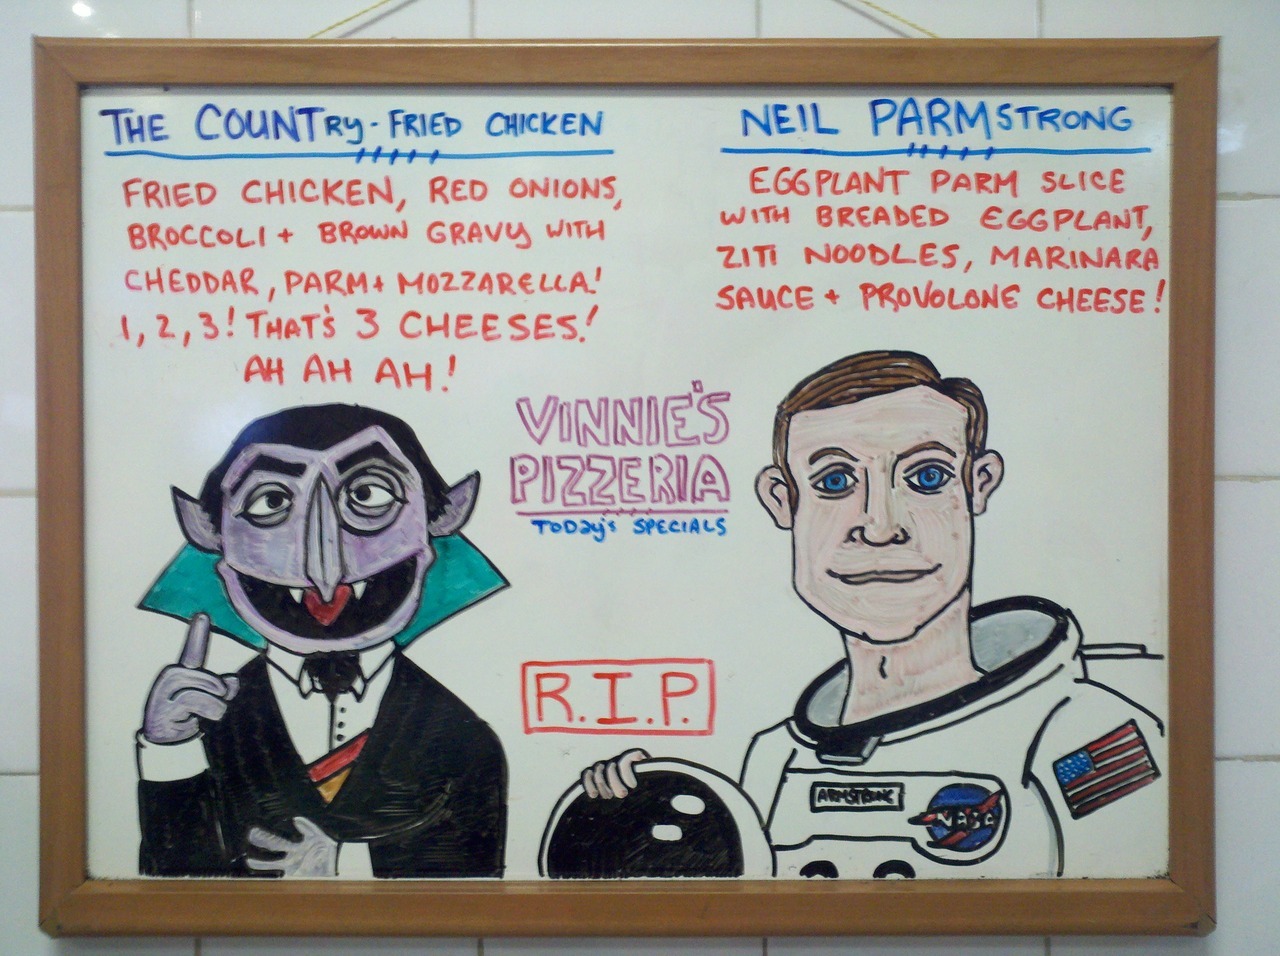 THE COUNTRY-FRIED CHICKEN
FRIED CHICKEN, RED ONIONS,
BROCCOLI + BROWN GRAVY WITH
CHEDDAR, PARM + MOZZARELLA!
1, 2, 3! THAT'S 3 CHEESES!
AH AH AH!
NEIL PARMSTRONG
EGGPLANT PARM SLICE
WITH BREADED EGGPLANT,
ZITI NOODLES, MARINARA
SAUCE + PROVOLONE CHEESE!
VINNIE'S
PIZZERIA
TODAY'S SPECIALS
R.I.P.
ARMSTRONG
NASA